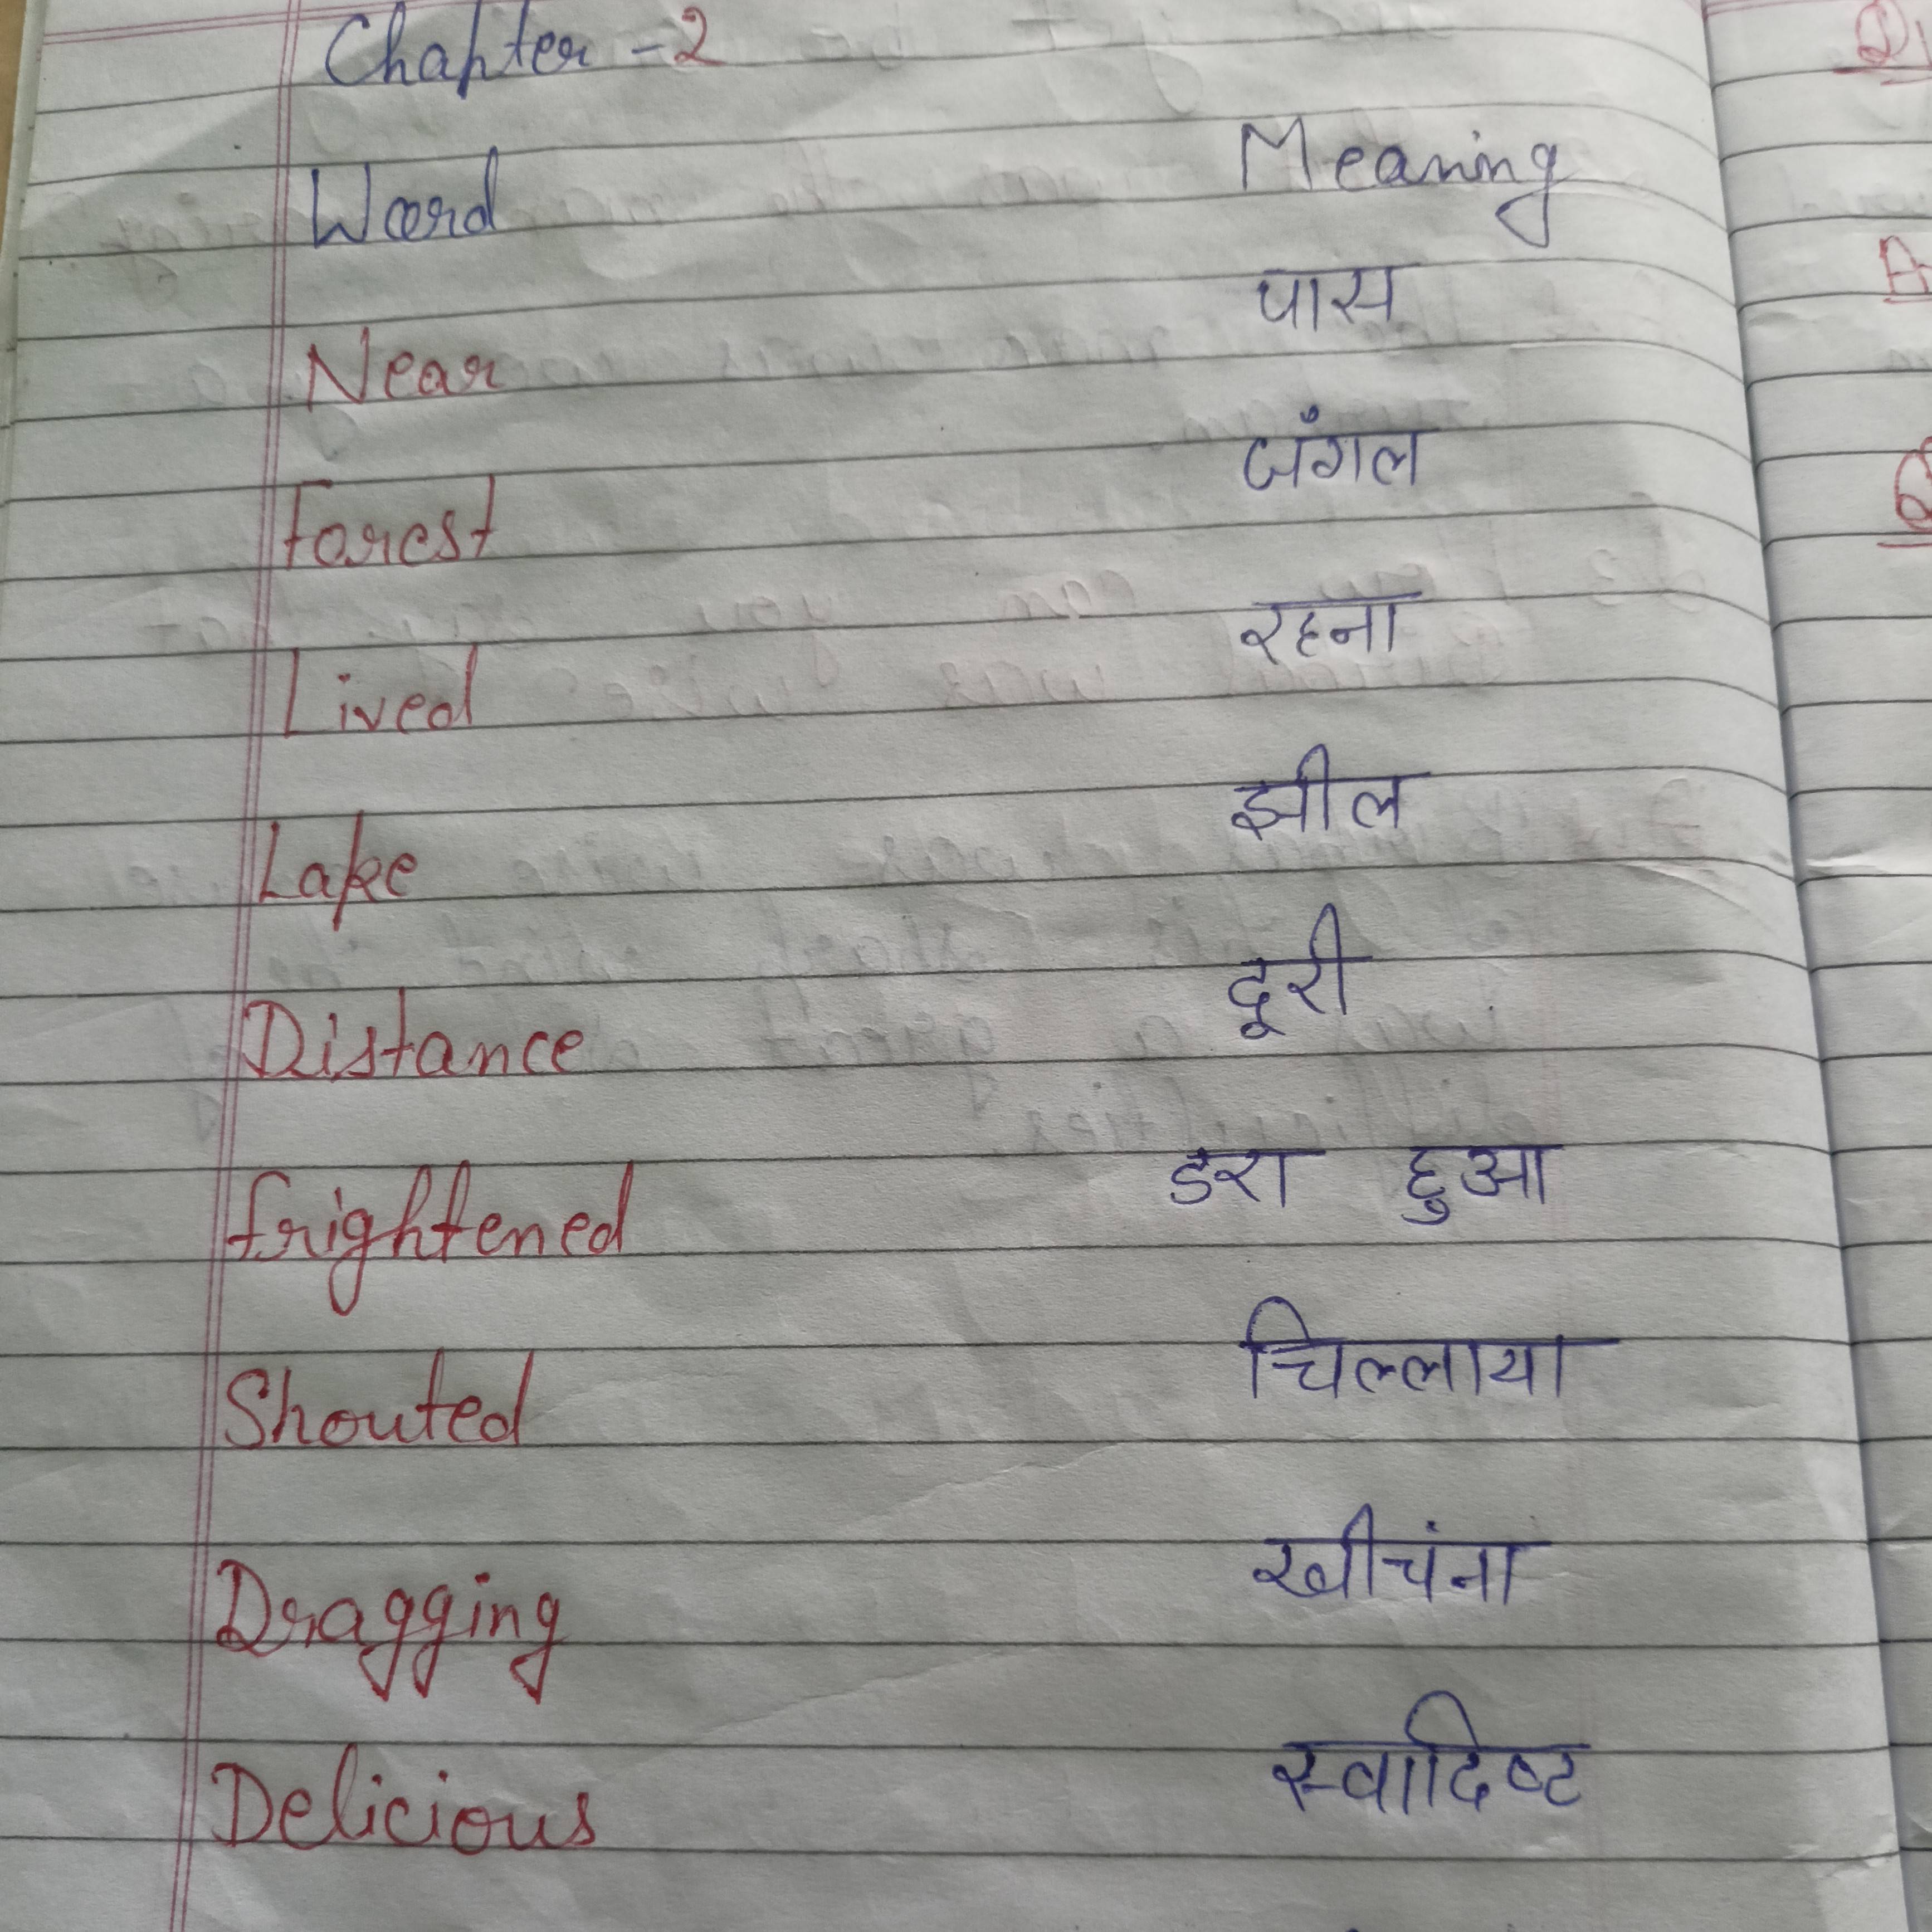 Chapter - 2
Word Meaning
Near पास
Forest जँगल
Lived रहना
Lake झील
Distance दूरी
frightened डरा हुआ
Shouted चिल्लाया
Dragging खीचंना
Delicious स्वादिष्ट